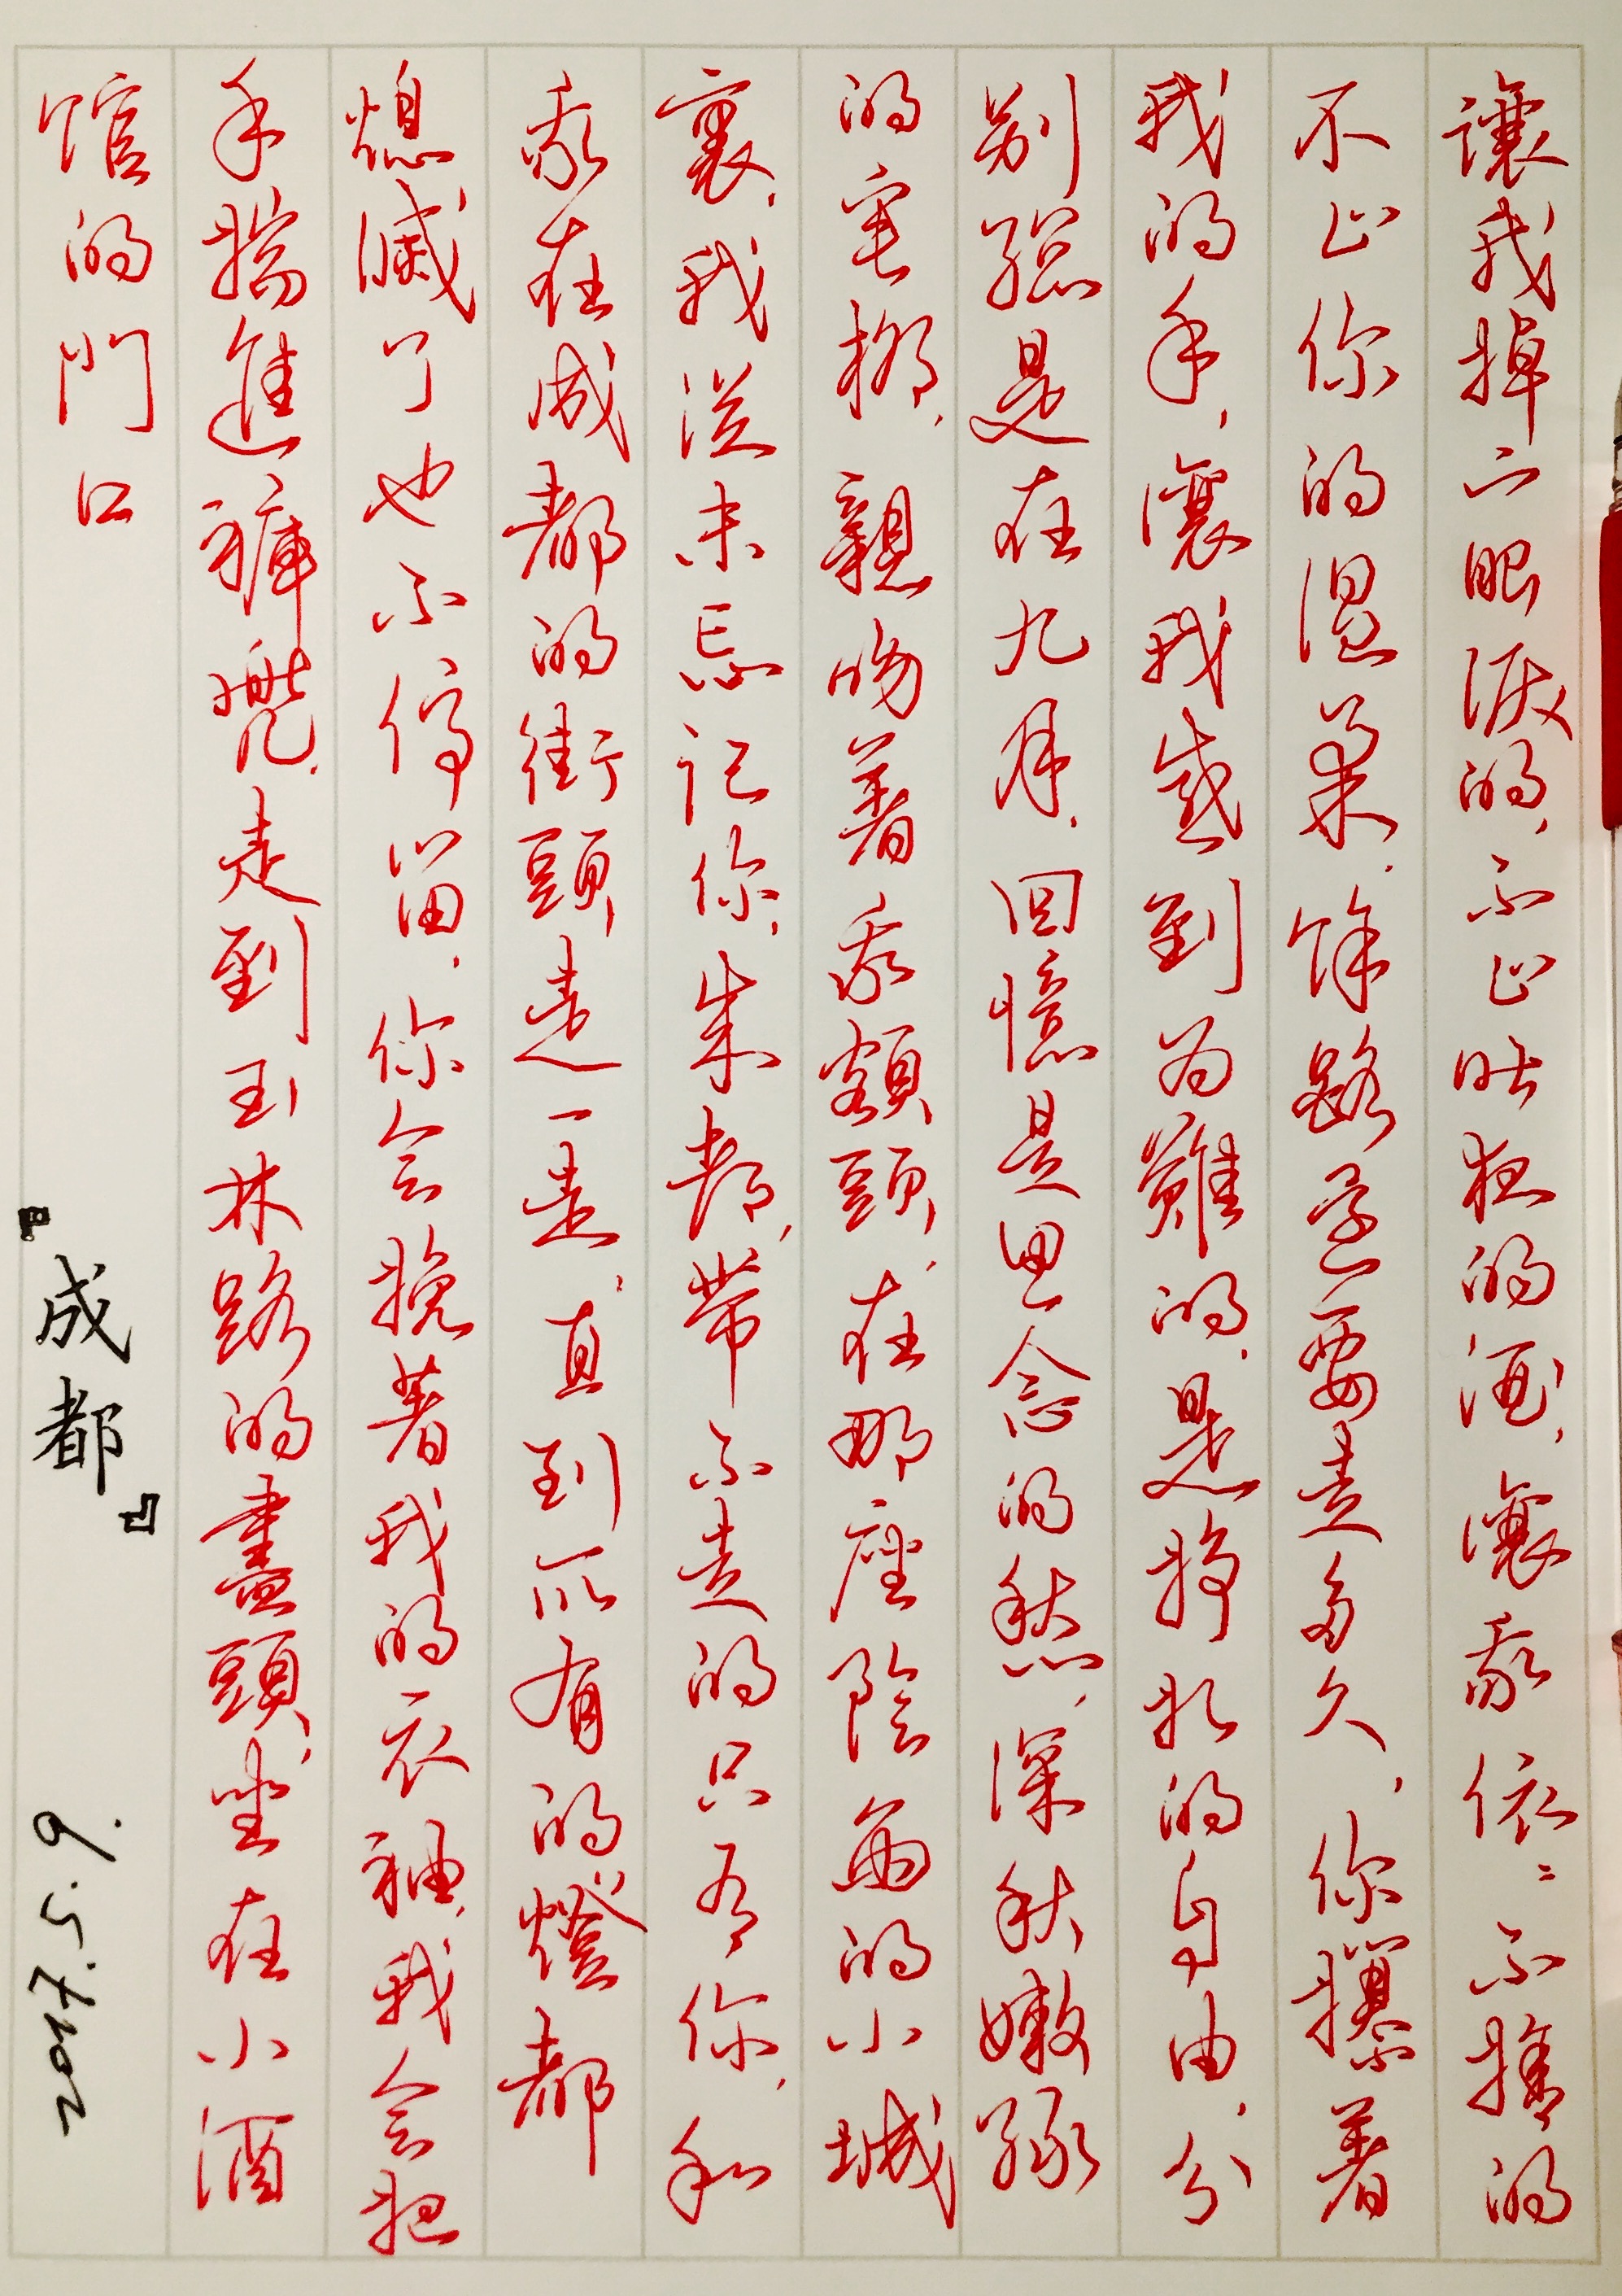 讓我掉下眼淚的，不止昨夜的酒，讓我依依不捨的
不止你的温柔，餘路還要走多久，你攥着
我的手，讓我感到为難的，是掙扎的自由，分
别總是在九月，回憶是思念的愁，深秋嫩綠
的垂柳，親吻着我額頭，在那座陰雨的小城
裏，我從未忘记你，成都，带不走的只有你，和
我在成都的街頭走一走，直到所有的燈都
熄滅了也不停留，你会挽着我的衣袖，我会把
手揣進褲兜，走到玉林路的盡頭，坐在小酒
馆的門口
『成都』
2017.5.9.